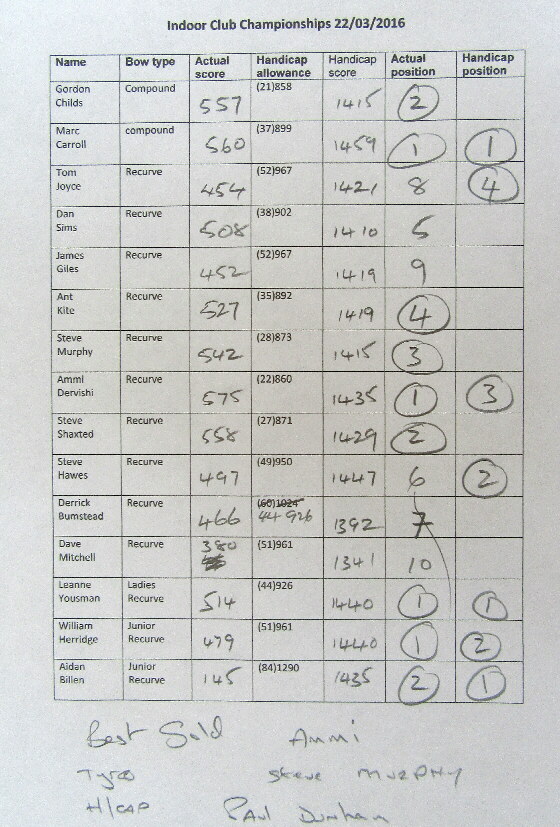 Indoor Club Championships 22/03/2016
Name Bow type Actual score Handicap allowance Handicap score Actual position Handicap position
Gordon Childs Compound 557 (21)858 1415 2
Marc Carroll compound 560 (37)899 1459 1 1
Tom Joyce Recurve 454 (52)967 1421 8 4
Dan Sims Recurve 508 (38)902 1410 5
James Giles Recurve 452 (52)967 1419 9
Ant Kite Recurve 527 (35)892 1419 4
Steve Murphy Recurve 542 (28)873 1415 3
Ammi Dervishi Recurve 575 (22)860 1435 1 3
Steve Shaxted Recurve 558 (27)871 1429 2
Steve Hawes Recurve 497 (49)950 1447 6 2
Derrick Bumstead Recurve 466 (60)1024 44 926 1392 7
Dave Mitchell Recurve 380 (51)961 1341 10
Leanne Yousman Ladies Recurve 514 (44)926 1440 1 1
William Herridge Junior Recurve 479 (51)961 1440 1 2
Aidan Billen Junior Recurve 145 (84)1290 1435 2 1
Best Gold Ammi
Tyro Steve MURPHY
H/CAP Paul Dunham